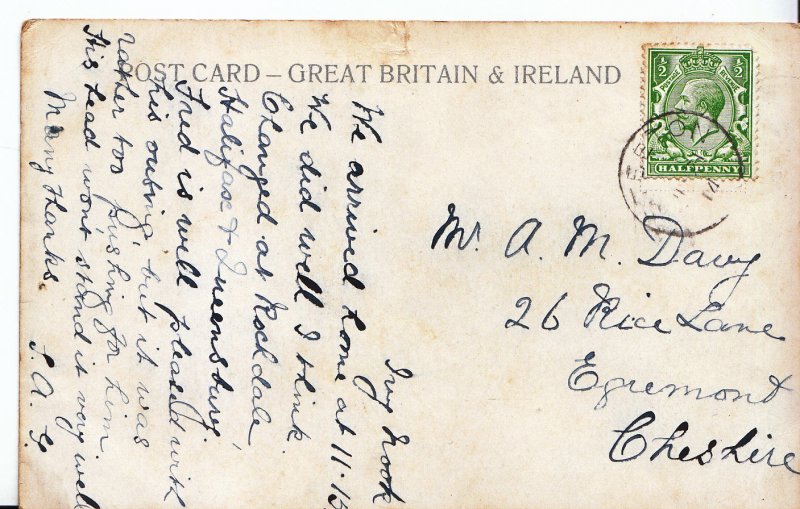 POST CARD – GREAT BRITAIN & IRELAND
½ ½
POSTAGE REVENUE
HALFPENNY
Mr. A. M. Davy
26 Rice Lane
Egremont
Cheshire
Ivy Nook
We arrived home at 11.15
We did well I think
Changed at Rochdale
Halifax & Queensbury
Fred is well pleased with
his outing but it was
rather too pushing for him
His head wont stand it very well
Many thanks